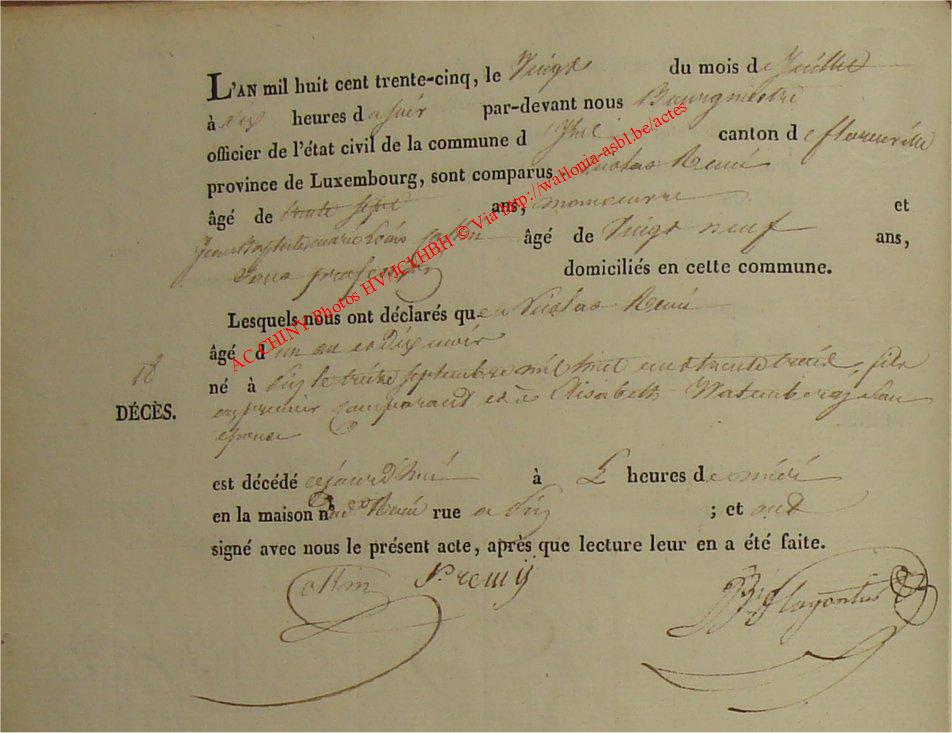 L'AN mil huit cent trente-cinq, le Vingt du mois de Juillet
à six heures du soir par-devant nous Bourgmestre
officier de l'état civil de la commune d canton de florenville
province de Luxembourg, sont comparus Nicolas Remi
âgé de trente sept ans, manoeuvre et
Jean Baptiste marie Louis Collin âgé de Vingt neuf ans,
Sans profession domiciliés en cette commune.
Lesquels nous ont déclarés que Nicolas Remi
âgé d'un an et dix mois
né à le treize septembre mil huit cent trente trois, fils
du premier comparant et de Elisabeth son
épouse
18
DÉCÈS.
est décédé cejourd'hui à heures de midi
en la maison n° dud Remi rue à ; et ont
signé avec nous le présent acte, après que lecture leur en a été faite.
Collin N. remij
AC CHINY Photos HV/JCI/HBH © Via http://wallonia-asbl.be/actes